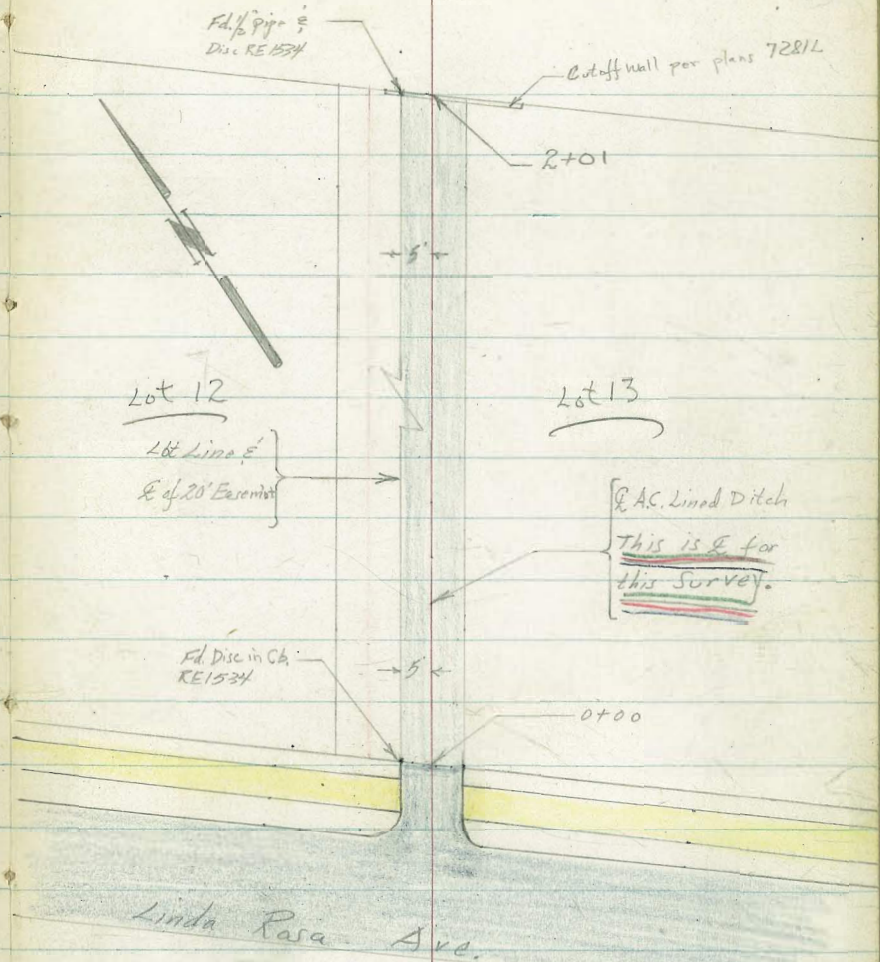 Fd. 1/2" pipe &
Disc RE 1534
Cutoff Wall per plans 7281L
2+01
5'
Lot 12
Lot 13
Lot Line &
℄ of 20' Easemnt
℄ A.C. Lined Ditch
This is ℄ for
this Survey.
Fd. Disc in Cb.
RE 1534
5'
0+00
Linda Rosa Ave.